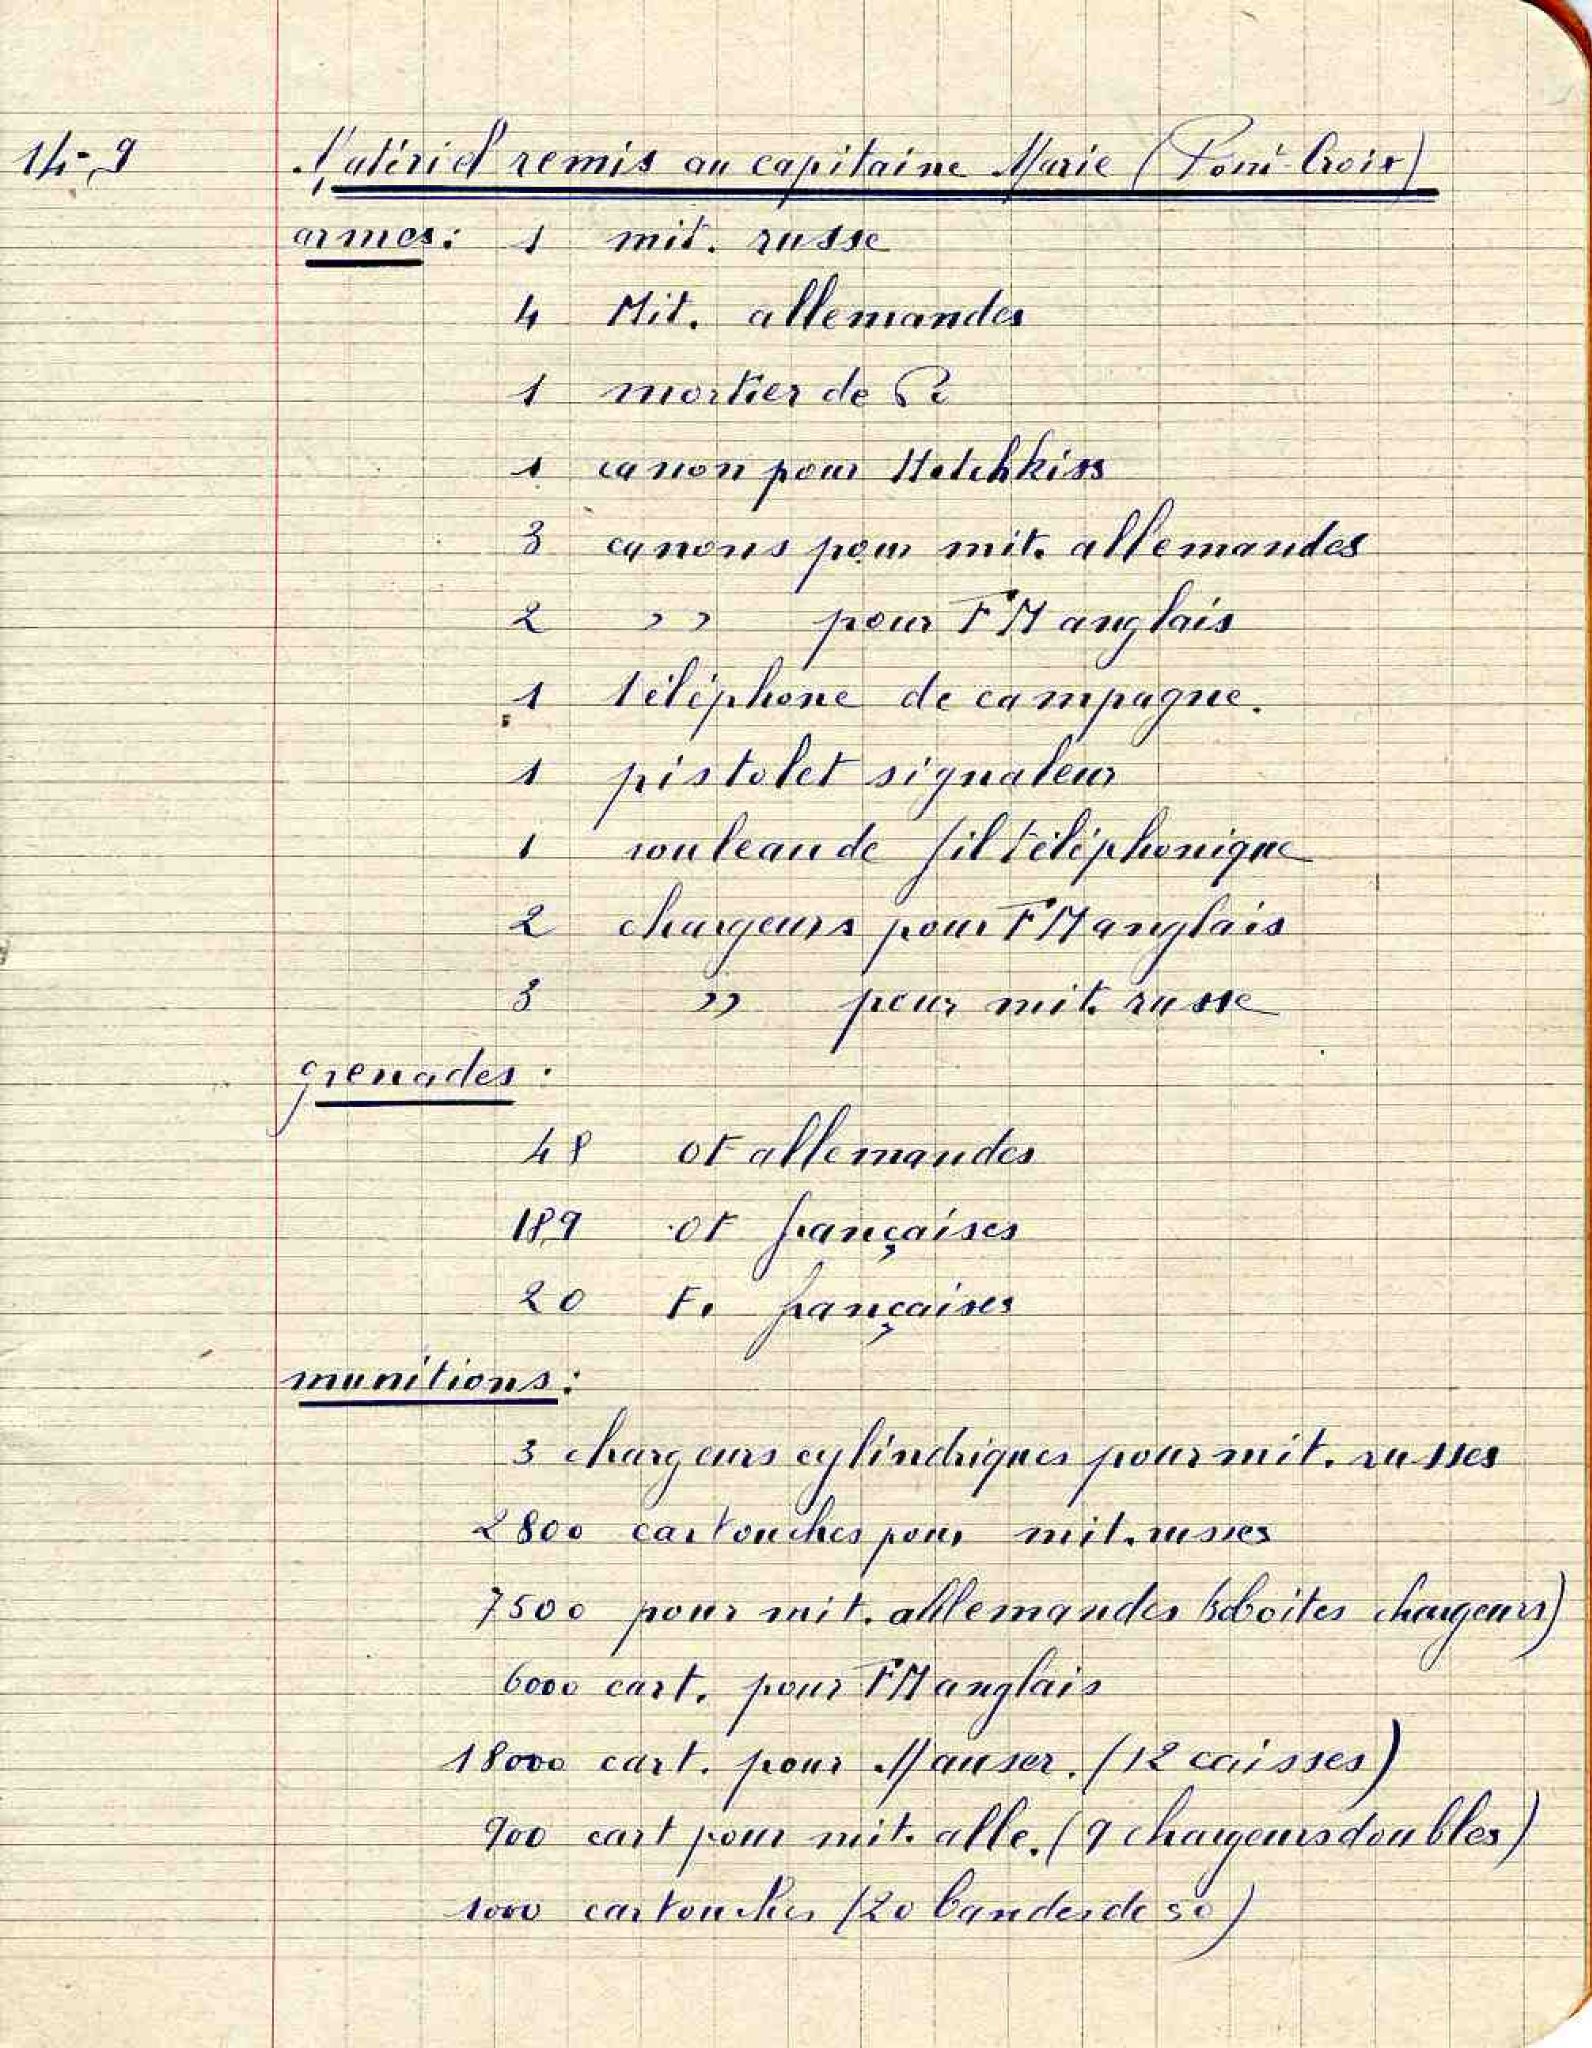 14-9 Matériel remis au capitaine Marie (Pont-Croix)
armes: 1 mit. russe
4 Mit. allemandes
1 mortier de
1 canon pour Hotchkiss
3 canons pour mit. allemandes
2 " pour FM anglais
1 téléphone de campagne.
1 pistolet signaleur
1 rouleau de fil téléphonique
2 chargeurs pour FM anglais
3 " pour mit. russe
grenades:
48 of allemandes
189 of françaises
20 F. françaises
munitions:
3 chargeurs cylindriques pour mit. russes
2800 cartouches pour mit. russes
7500 pour mit. allemandes boites chargeurs)
6000 cart. pour FM anglais
18000 cart. pour Mauser. (12 caisses)
900 cart pour mit. alle. (9 chargeurs doubles)
1000 cartouches (20 bandes de 50)